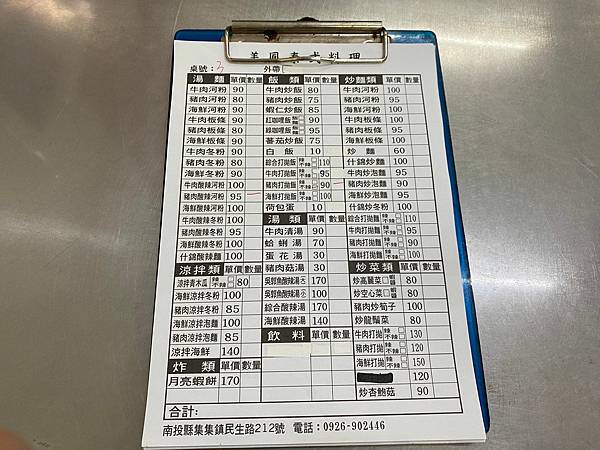 美鳳泰式料理
桌號：3 外帶
湯麵 單價 數量
牛肉河粉 90
豬肉河粉 80
海鮮河粉 90
牛肉板條 90
豬肉板條 80
海鮮板條 90
牛肉冬粉 90
豬肉冬粉 80
海鮮冬粉 90
牛肉酸辣河粉 100
豬肉酸辣河粉 95
海鮮酸辣河粉 100
牛肉酸辣冬粉 100
豬肉酸辣冬粉 95
海鮮酸辣冬粉 100
什錦酸辣麵 100
涼拌類 單價 數量
涼拌青木瓜 辣 不辣 80
海鮮涼拌冬粉 100
豬肉涼拌冬粉 85
海鮮涼拌泡麵 100
豬肉涼拌泡麵 85
涼拌海鮮 140
炸類 單價 數量
月亮蝦餅 170
飯類 單價 數量
牛肉炒飯 80
豬肉炒飯 75
蝦仁炒飯 85
紅咖哩飯 90
綠咖哩飯 95
蕃茄炒飯 75
白飯 10
綜合打拋飯 辣 不辣 110
牛肉打拋飯 辣 不辣 95
豬肉打拋飯 辣 不辣 90
海鮮打拋飯 辣 不辣 100
荷包蛋 10
湯類 單價 數量
牛肉清湯 90
蛤蜊湯 70
蛋花湯 30
豬肉菇湯 30
吳郭魚酸辣湯 大 170
吳郭魚酸辣湯 小 100
綜合酸辣湯 170
海鮮酸辣湯 140
飲料 單價 數量
炒麵類 單價 數量
牛肉河粉 100
豬肉河粉 95
海鮮河粉 100
牛肉板條 100
豬肉板條 95
海鮮板條 100
炒麵 60
什錦炒麵 100
牛肉炒泡麵 95
豬肉炒泡麵 90
什錦炒冬粉 100
綜合打拋麵 辣 不辣 110
牛肉打拋麵 辣 不辣 95
豬肉打拋麵 辣 不辣 90
海鮮打拋麵 辣 不辣 100
炒菜類 單價 數量
炒高麗菜 80
炒空心菜 80
豬肉炒筍子 100
炒龍鬚菜 80
牛肉打拋 辣 不辣 130
豬肉打拋 辣 不辣 120
海鮮打拋 辣 不辣 150
120
炒杏鮑菇 90
合計:
南投縣集集鎮民生路212號 電話：0926-902446